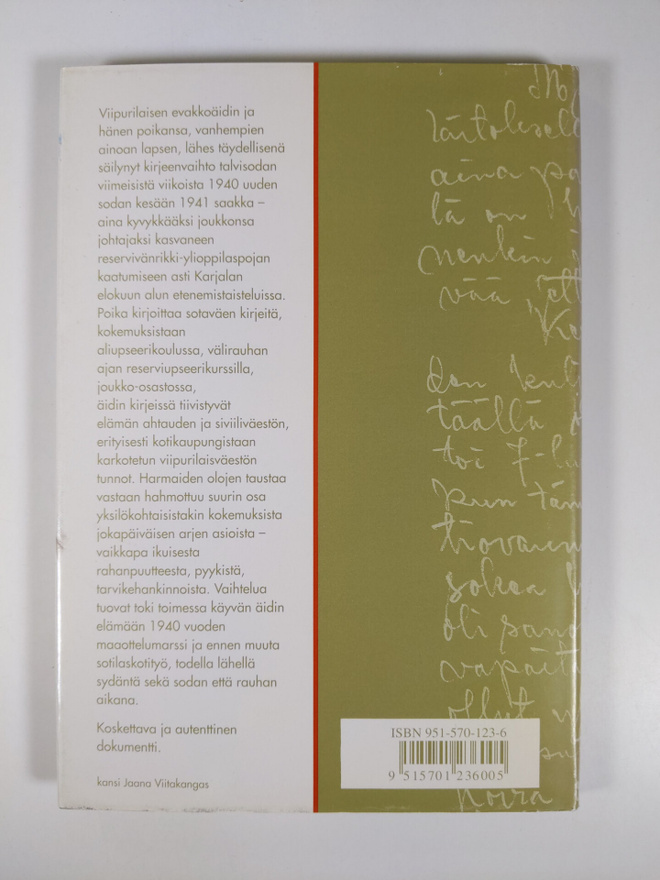 Viipurilaisen evakkoäidin ja
hänen poikansa, vanhempien
ainoan lapsen, lähes täydellisenä
säilynyt kirjeenvaihto talvisodan
viimeisistä viikoista 1940 uuden
sodan kesään 1941 saakka –
aina kyvykkääksi joukkonsa
johtajaksi kasvaneen
reservivänrikki-ylioppilaspojan
kaatumiseen asti Karjalan
elokuun alun etenemistaisteluissa.
Poika kirjoittaa sotaväen kirjeitä,
kokemuksistaan
aliupseerikoulussa, välirauhan
ajan reserviupseerikurssilla,
joukko-osastossa,
äidin kirjeissä tiivistyvät
elämän ahtauden ja siviiliväestön,
erityisesti kotikaupungistaan
karkotetun viipurilaisväestön
tunnot. Harmaiden olojen taustaa
vastaan hahmottuu suurin osa
yksilökohtaisistakin kokemuksista
jokapäiväisen arjen asioista –
vaikkapa ikuisesta
rahanpuutteesta, pyykistä,
tarvikehankinnoista. Vaihtelua
tuovat toki toimessa käyvän äidin
elämään 1940 vuoden
maaottelumarssi ja ennen muuta
sotilaskotityö, todella lähellä
sydäntä sekä sodan että rauhan
aikana.
Koskettava ja autenttinen
dokumentti.
kansi Jaana Viitakangas
aina pa
lä on
nenkin
vää
täällä
toi 7-lu
kun täm
sokea
oli sang
vapait
ollut
Koira
ISBN 951-570-123-6
9 515701 236005